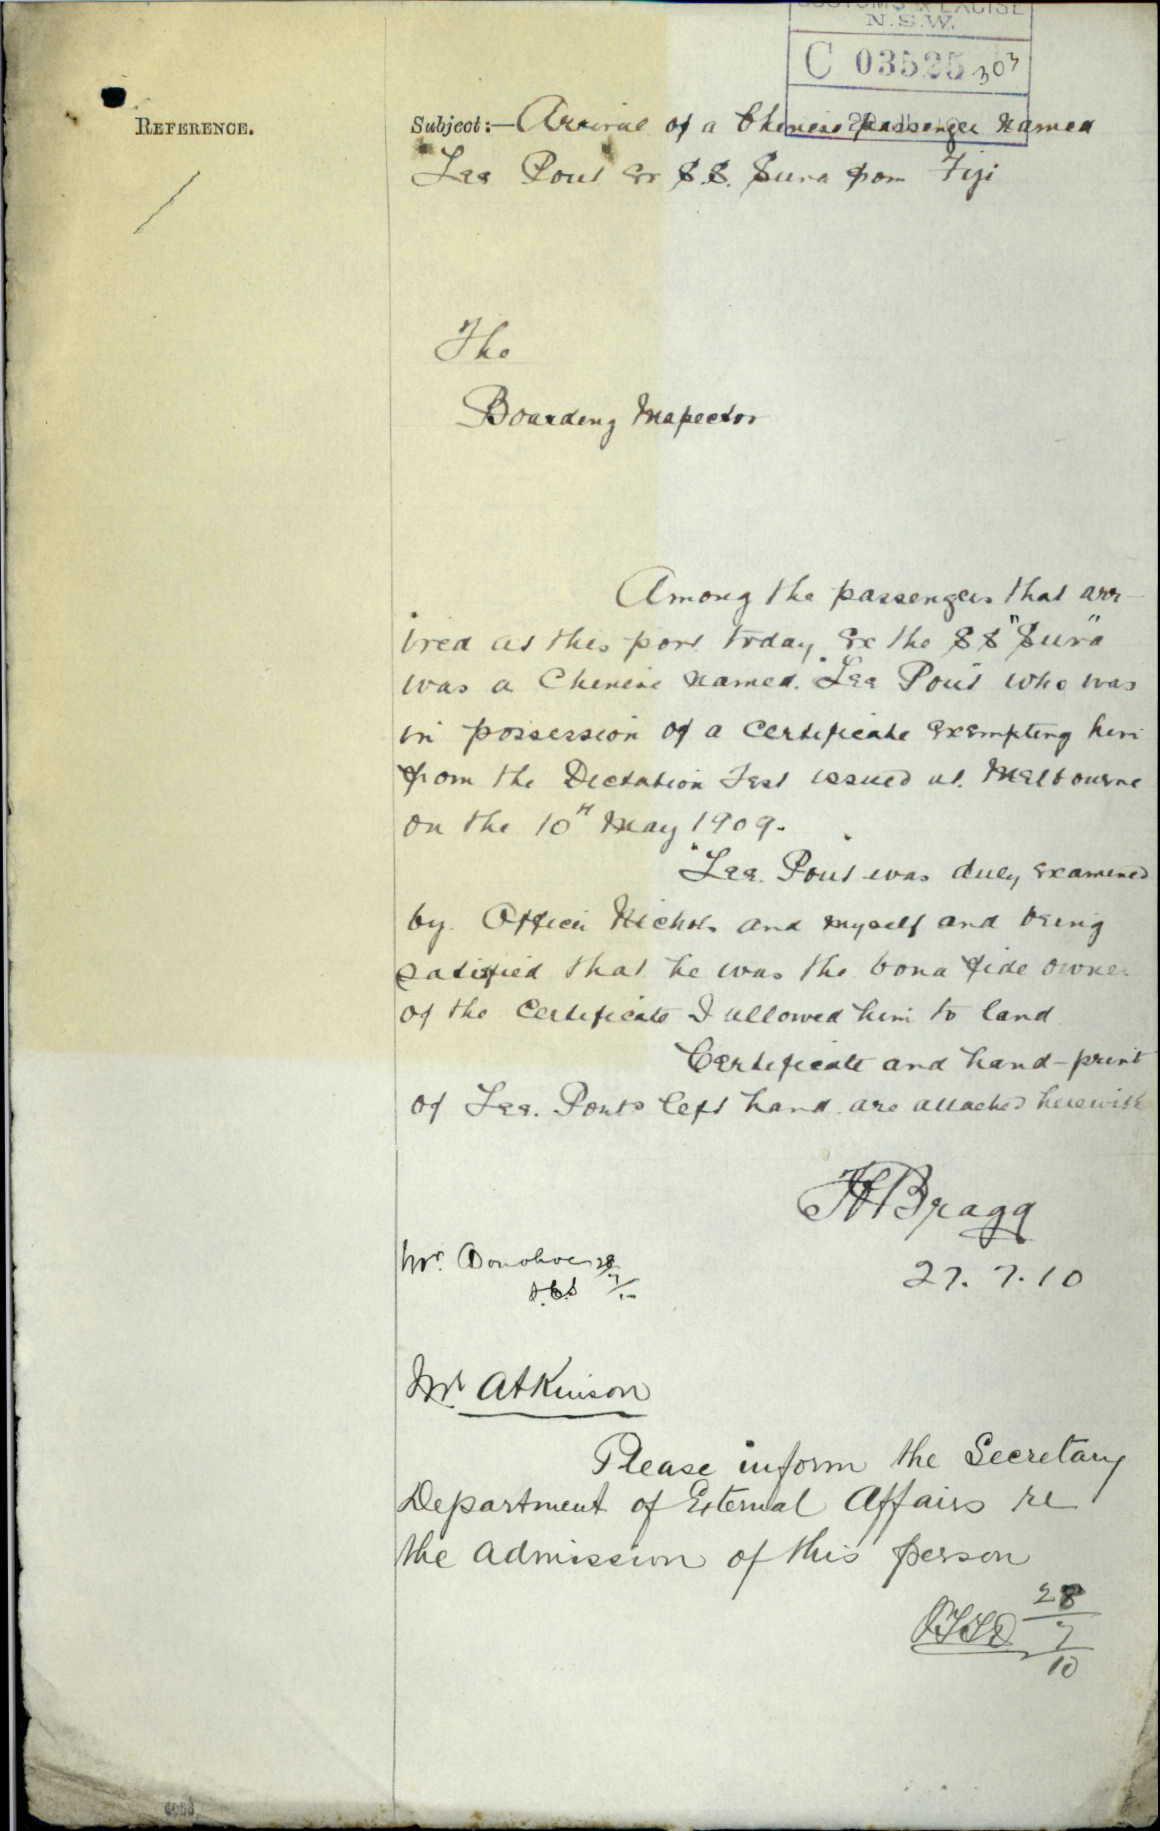 CUSTOMS & EXCISE
N.S.W.
C 03525
303
REFERENCE.
Subject:— Arrival of a Chinese passenger named
Lee Pout Ex S.S. Suva from Fiji
The
Boarding Inspector
Among the passengers that arr-
ived at this port today Ex the SS "Suva"
was a Chinese named "Lee Pout" who was
in possession of a certificate exempting him
from the Dictation Test issued at Melbourne
on the 10th May 1909.
"Lee Pout" was duly examined
by Officer Nichols and myself and being
satisfied that he was the bona fide owner
of the Certificate I allowed him to land
Certificate and hand-print
of Lee Pouts left hand are attached herewith
Bragg
27.7.10
Mr. Donohoe 28/7/10
Mr Atkinson
Please inform the Secretary
Department of External Affairs re
the admission of this person
28/7/10